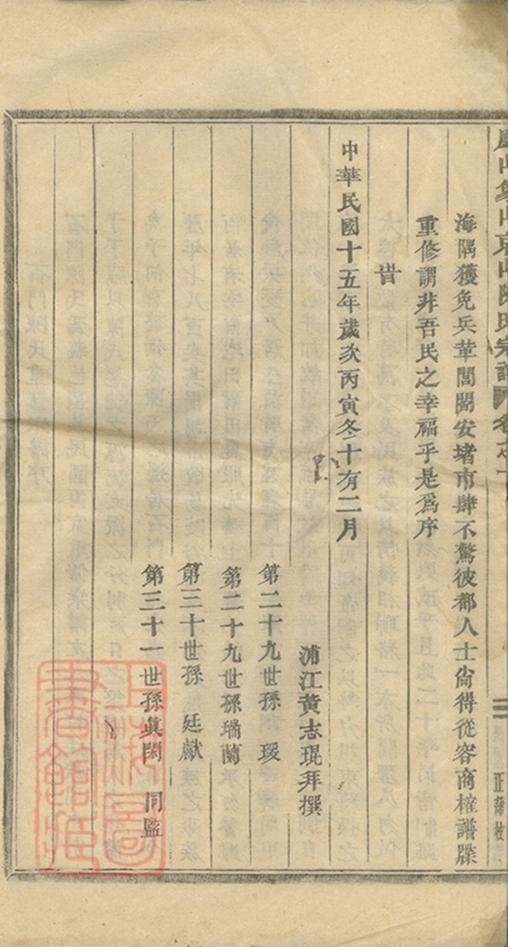 海隅獲免兵革閭閻安堵市肆不驚彼都人士尙得從容商榷譜牒
重修謂非吾民之幸福乎是爲序
旹
中華民國十五年歲次丙寅冬十有二月
浦江黃志琨拜撰
第二十九世孫 瑗
第二十九世孫瑞蘭
第三十世孫 廷獻
第三十一世孫眞閑 同監